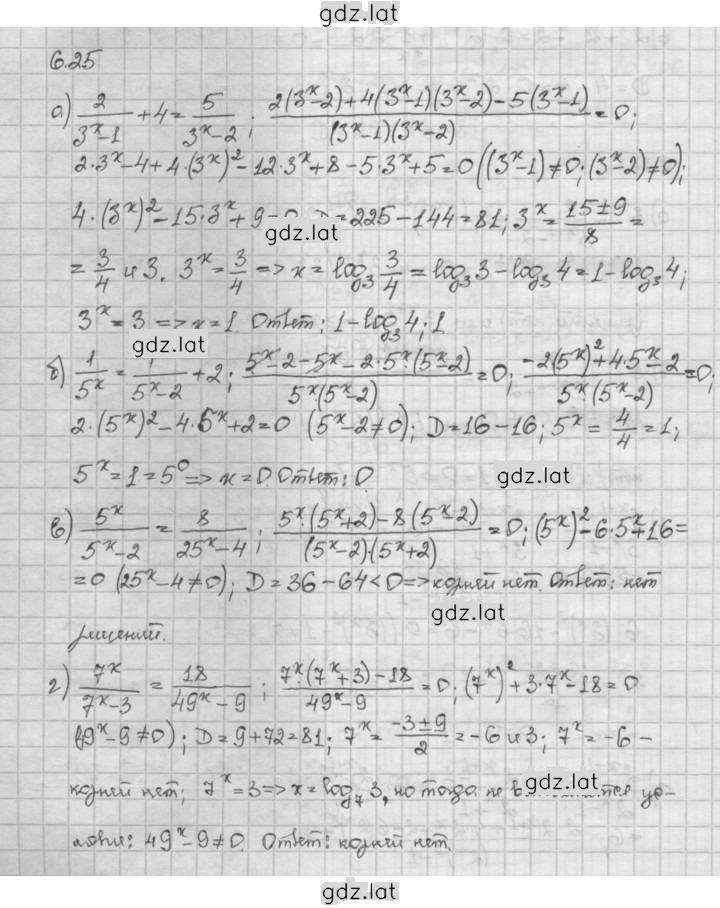 gdz.lat
6.25
а) 2/(3^x-1) + 4 = 5/(3^x-2); (2(3^x-2)+4(3^x-1)(3^x-2)-5(3^x-1))/((3^x-1)(3^x-2)) = 0;
2·3^x-4+4·(3^x)^2-12·3^x+8-5·3^x+5=0 ((3^x-1)≠0; (3^x-2)≠0);
4·(3^x)^2-15·3^x+9=0 =225-144=81; 3^x = (15±9)/8 =
gdz.lat
= 3/4 и 3. 3^x = 3/4 => x = log_3 3/4 = log_3 3 - log_3 4 = 1 - log_3 4;
3^x = 3 => x = 1. Ответ: 1 - log_3 4; 1
gdz.lat
б) 1/5^x = 1/(5^x-2) + 2; (5^x-2-5^x-2·5^x·(5^x-2))/(5^x·(5^x-2)) = 0; (-2(5^x)^2+4·5^x-2)/(5^x·(5^x-2)) = 0;
2·(5^x)^2-4·5^x+2=0 (5^x-2≠0); D=16-16; 5^x = 4/4 = 1;
5^x = 1 = 5^0 => x = 0. Ответ: 0
gdz.lat
в) 5^x/(5^x-2) = 8/(25^x-4); (5^x·(5^x+2)-8(5^x-2))/((5^x-2)·(5^x+2)) = 0; (5^x)^2-6·5^x+16=
=0 (25^x-4≠0); D=36-64<0 => корней нет. Ответ: нет
gdz.lat
решений.
г) 7^x/(7^x-3) = 18/(49^x-9); (7^x·(7^x+3)-18)/(49^x-9) = 0; (7^x)^2+3·7^x-18=0
(49^x-9≠0); D=9+72=81; 7^x = (-3±9)/2 = -6 и 3; 7^x = -6 -
корней нет; 7^x = 3 => x = log_7 3, но тогда не ус-
gdz.lat
ловие: 49^x-9≠0. Ответ: корней нет.
gdz.lat